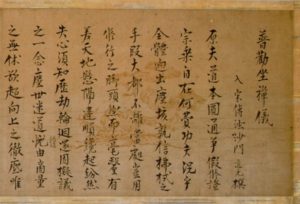 普勸坐禪儀
入宋傳法沙門道元撰
原夫道本圓通爭假修證
宗乘自在何費功夫況乎
全體逈出塵埃兮孰信拂拭之
手段大都不離當處兮豈用
修行之脚頭然而毫釐有
差天地懸隔違順纔起紛然
失心須知歷劫輪迴還因擬議
之一念塵世迷道復由商量
之無休欲超向上之徹底唯